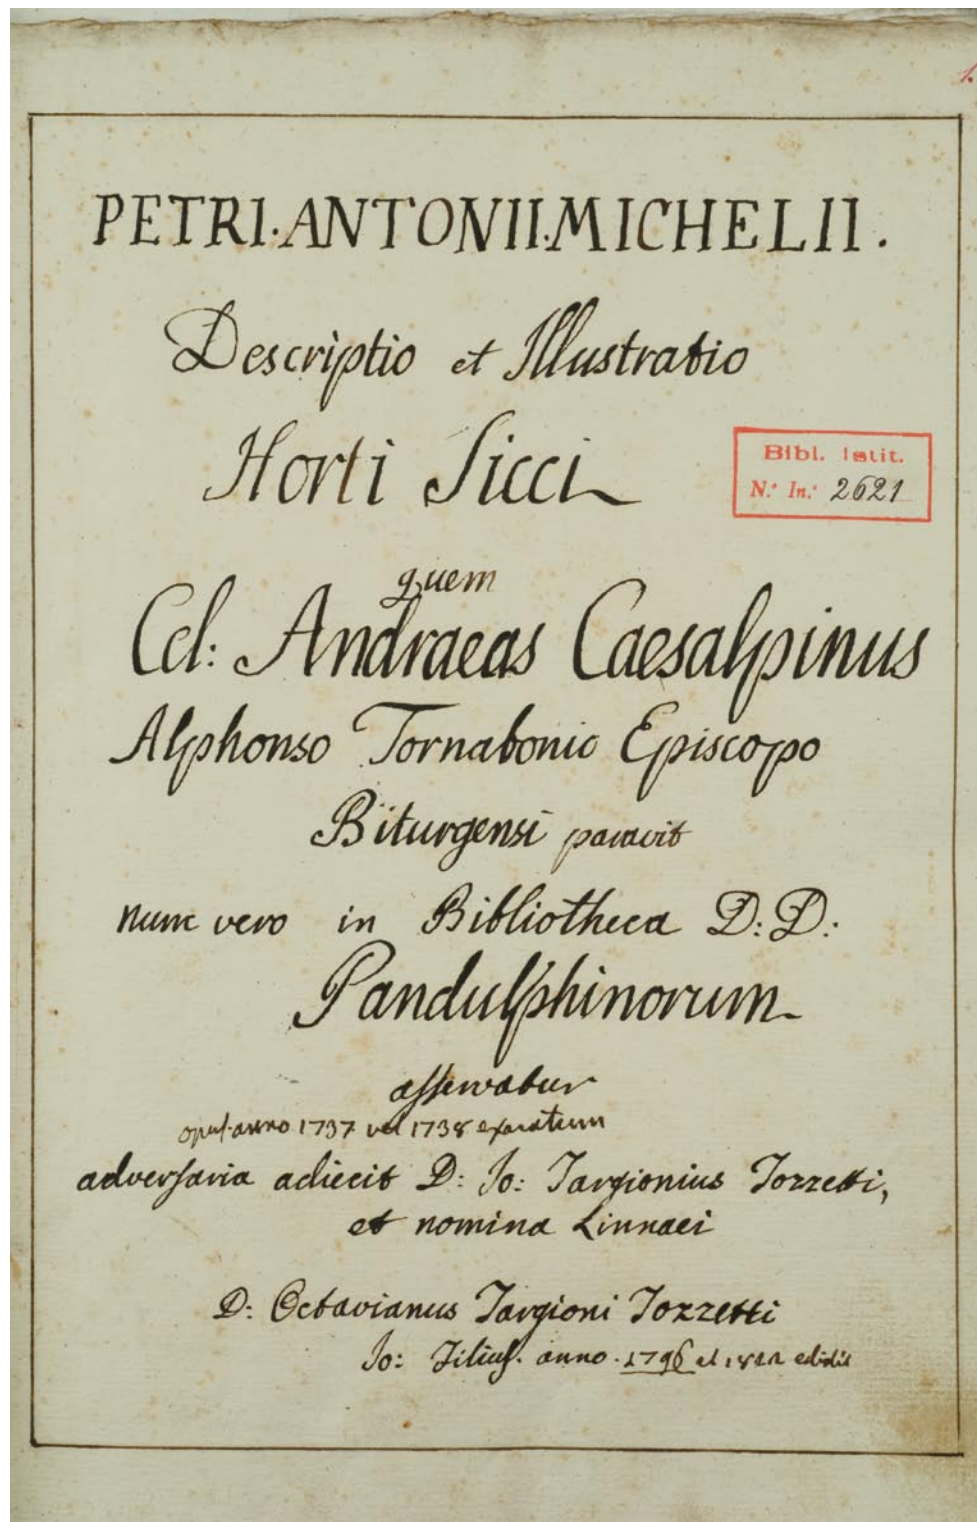 1.
PETRI·ANTONII·MICHELII.
Descriptio et Illustratio
Horti Sicci
Bibl. Istit.
N.° In.° 2621
quem
Cel: Andraeas Caesalpinus
Alphonso Tornabonio Episcopo
Biturgensi paravit
nunc vero in Bibliotheca D: D:
Pandulphinorum
asservatur
opus anno 1737 vel 1738 exaratum
adversaria adiecit D: Jo: Targionius Tozzetti,
et nomina Linnaei
D: Octavianus Targioni Tozzetti
Jo: Filius. anno. 1796 et edidit